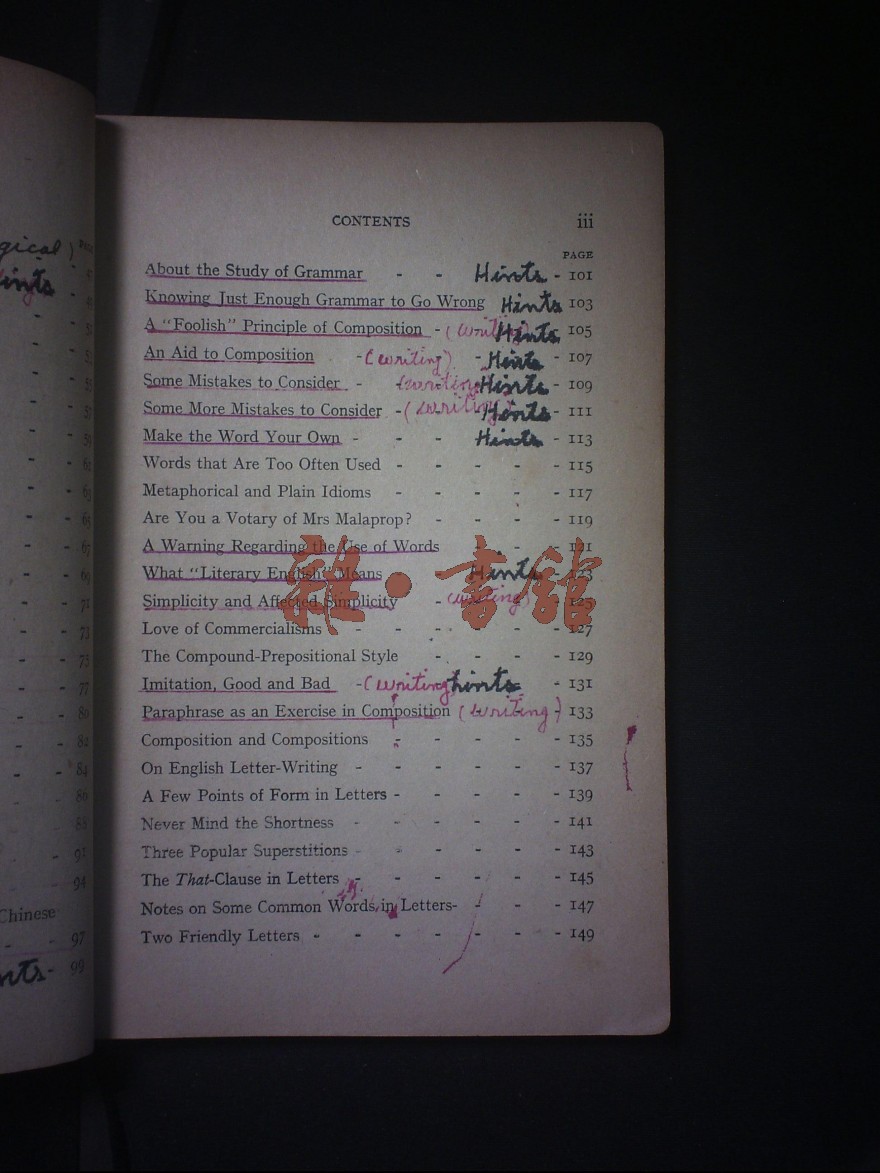 CONTENTS iii
PAGE
About the Study of Grammar - - Hints - 101
Knowing Just Enough Grammar to Go Wrong Hints 103
A "Foolish" Principle of Composition - (writing) Hints 105
An Aid to Composition - (writing) - Hints - 107
Some Mistakes to Consider - (writing) Hints - 109
Some More Mistakes to Consider - (writing) Hints - 111
Make the Word Your Own - - - Hints - 113
Words that Are Too Often Used - - - - - 115
Metaphorical and Plain Idioms - - - - - 117
Are You a Votary of Mrs Malaprop? - - - - 119
A Warning Regarding the Use of Words - - 121
What "Literary English" Means - Hints 123
Simplicity and Affected Simplicity (writing) 125
Love of Commercialisms - - - - - - 127
The Compound-Prepositional Style - - - - 129
Imitation, Good and Bad - (writing) hints - 131
Paraphrase as an Exercise in Composition (writing) - 133
Composition and Compositions - - - - - 135
On English Letter-Writing - - - - - - 137
A Few Points of Form in Letters - - - - - 139
Never Mind the Shortness - - - - - - 141
Three Popular Superstitions - - - - - - 143
The That-Clause in Letters - - - - - - 145
Notes on Some Common Words in Letters- - - - 147
Two Friendly Letters - - - - - - - 149
雜·書館
gical)
ints
Chinese
- - 97
nts - 99